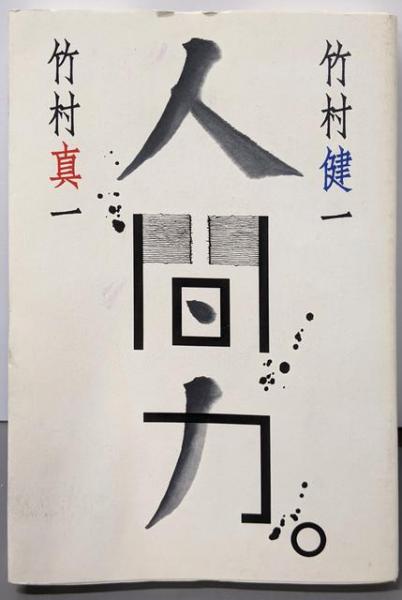 竹村健一
人間力。
竹村真一